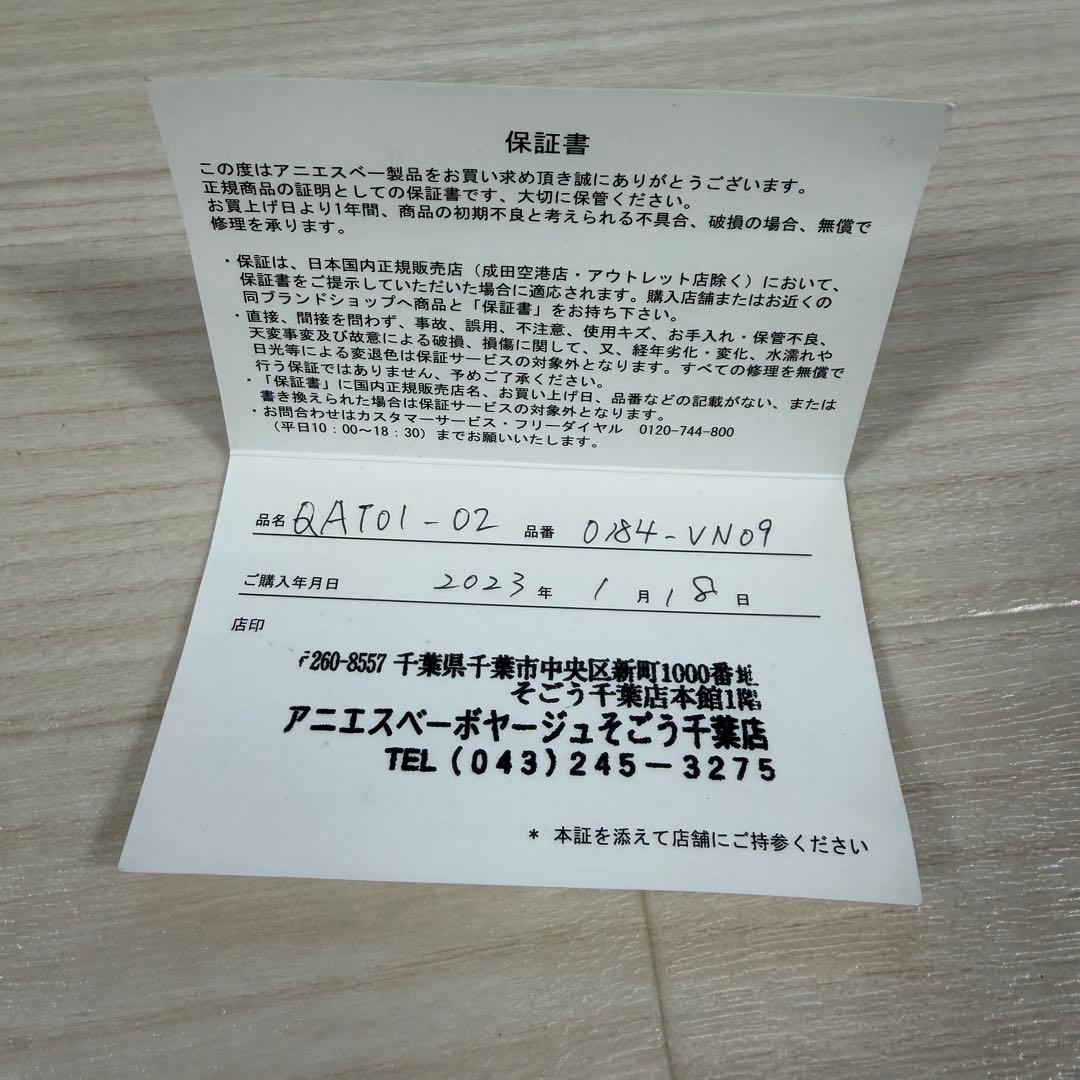 保証書
この度はアニエスベー製品をお買い求め頂き誠にありがとうございます。
正規商品の証明としての保証書です、大切に保管ください。
お買上げ日より1年間、商品の初期不良と考えられる不具合、破損の場合、無償で
修理を承ります。
・保証は、日本国内正規販売店（成田空港店・アウトレット店除く）において、
保証書をご提示していただいた場合に適応されます。購入店舗またはお近くの
同ブランドショップへ商品と「保証書」をお持ち下さい。
・直接、間接を問わず、事故、誤用、不注意、使用キズ、お手入れ・保管不良、
天変事変及び故意による破損、損傷に関して、又、経年劣化・変化、水濡れや
日光等による変退色は保証サービスの対象外となります。すべての修理を無償で
行う保証ではありません、予めご了承ください。
・「保証書」に国内正規販売店名、お買い上げ日、品番などの記載がない、または
書き換えられた場合は保証サービスの対象外となります。
・お問合わせはカスタマーサービス・フリーダイヤル 0120-744-800
（平日10：00〜18：30）までお願いいたします。
品名 QAT01-02 品番 0184-VN09
ご購入年月日 2023年 1月18日
店印
〒260-8557 千葉県千葉市中央区新町1000番地
そごう千葉店本館1階
アニエスベーボヤージュそごう千葉店
TEL（043）245－3275
* 本証を添えて店舗にご持参ください